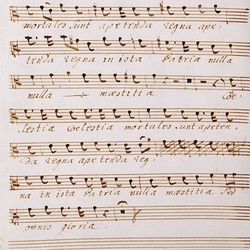 mortales sunt apetenda regna ape.
tenda regna in ista Patria nulla
nulla mæstitia Ce.
lestia Celestia mortales sunt apeten.
da regna apetenda reg
na in ista Patria nulla mæstitia sed
omnis gloria.